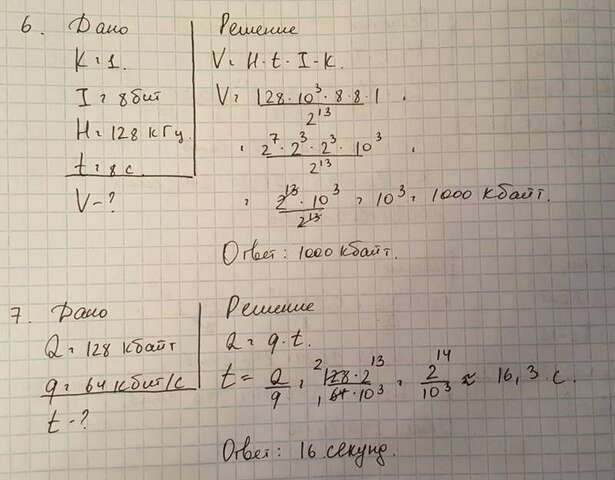 6. Дано
K = 1.
I = 8 бит
H = 128 кГц.
t = 8 с.
V - ?
Решение
V = H · t · I · K.
V = 128 · 10³ · 8 · 8 · 1 / 2¹³ =
= 2⁷ · 2³ · 2³ · 10³ / 2¹³ =
= 2¹³ · 10³ / 2¹³ = 10³ = 1000 кбайт.
Ответ: 1000 кбайт.
7. Дано
Q = 128 кбайт
q = 64 кбит/с
t - ?
Решение
Q = q · t.
t = Q / q = 2 128 · 2¹³ / 1 64 · 10³ = 2¹⁴ / 10³ ≈ 16,3 с.
Ответ: 16 секунд.